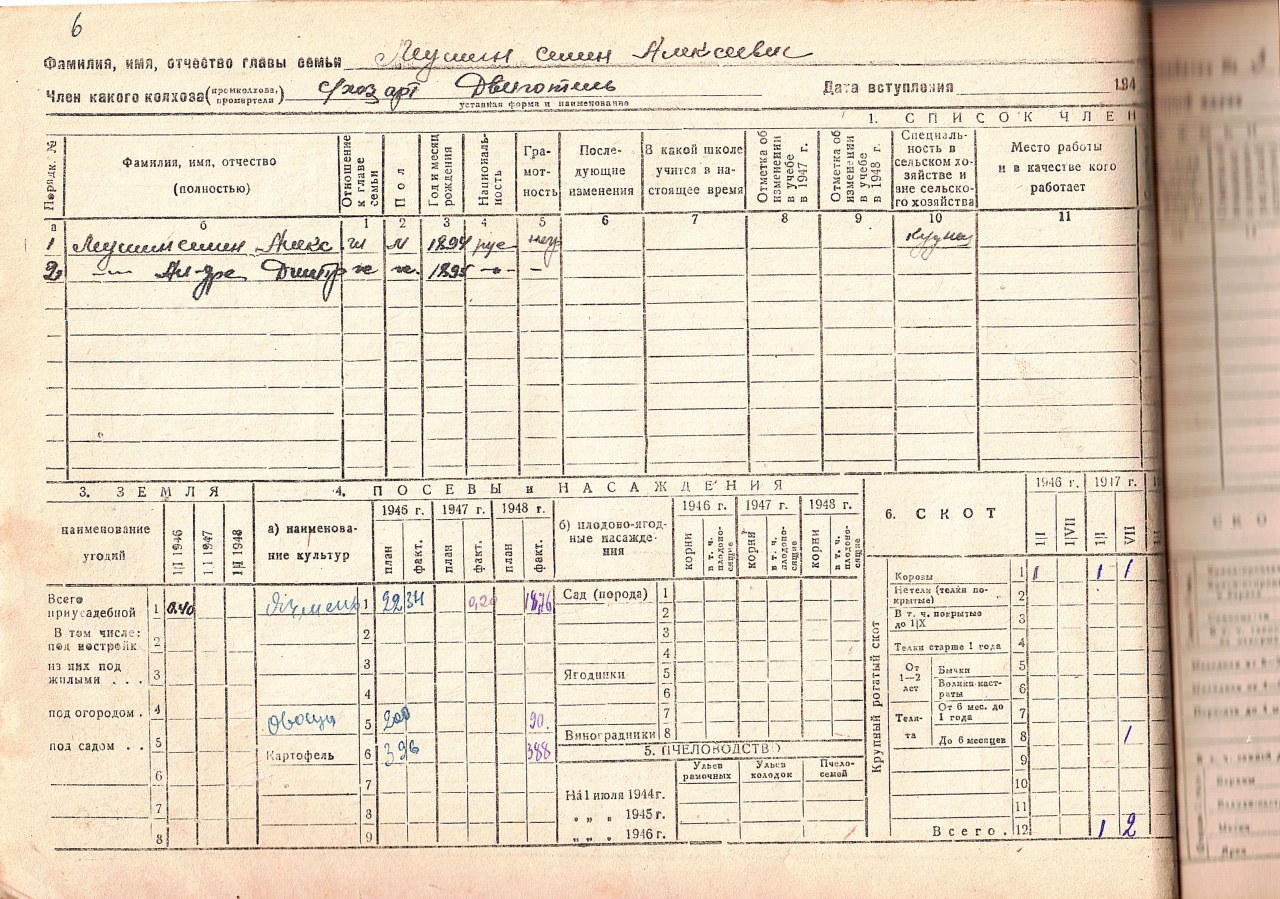 6
Фамилия, имя, отчество главы семьи Леушин Семен Алексеевич
Член какого колхоза (промколхоза, промартели) с/хоз арт Двигатель
уставная форма и наименование
Дата вступления 194
1. СПИСОК ЧЛЕН
Порядк. №
Фамилия, имя, отчество (полностью)
Отношение к главе семьи
Пол
Год и месяц рождения
Националь-ность
Гра-мот-ность
После-дующие изменения
В какой школе учится в на-стоящее время
Отметка об изменении в учебе в 1947 г.
Отметка об изменении в учебе в 1948 г.
Специаль-ность в сельском хо-зяйстве и вне сельско-го хозяйства
Место работы и в качестве кого работает
а б 1 2 3 4 5 6 7 8 9 10 11
1 Леушин Семен Алекс м 1894 рус
2 1895
3. ЗЕМЛЯ
наименование угодий
1|I 1946
1|I 1947
1|I 1948
Всего приусадебной 1 0.40
В том числе: под постройк 2
из них под жилыми . . . 3
под огородом . 4
под садом . . 5
6
7
8
4. ПОСЕВЫ и НАСАЖДЕНИЯ
а) наименова-ние культур
1946 г. 1947 г. 1948 г.
план факт. план факт. план факт.
Ячмень 1 22 34 0,20
2
3
4
Овощи 5 200 90.
Картофель 6 396 388
7
8
9
б) плодово-ягод-ные насажде-ния
1946 г. 1947 г. 1948 г.
корни в т. ч. плодоно-сящие корни в т. ч. плодоно-сящие корни в т. ч. плодоно-сящие
Сад (порода) 1
2
3
4
Ягодники 5
6
7
Виноградники 8
5. ПЧЕЛОВОДСТВО
Ульев рамочных
Ульев колодок
Пчело-семей
На 1 июля 1944 г.
„ „ „ 1945 г.
„ „ „ 1946 г.
6. СКОТ
1946 г. 1947 г.
1|I 1|VII 1|I VII
Крупный рогатый скот
Коровы 1 1 1 1
Нетели (телки по-крытые) 2
В т. ч. покрытые до 1|X 3
Телки старше 1 года 4
От 1—2 лет
Бычки 5
Волики-каст-раты 6
Теля-та
От 6 мес. до 1 года 7
До 6 месяцев 8 1
9
10
11
Всего. 12 1 2